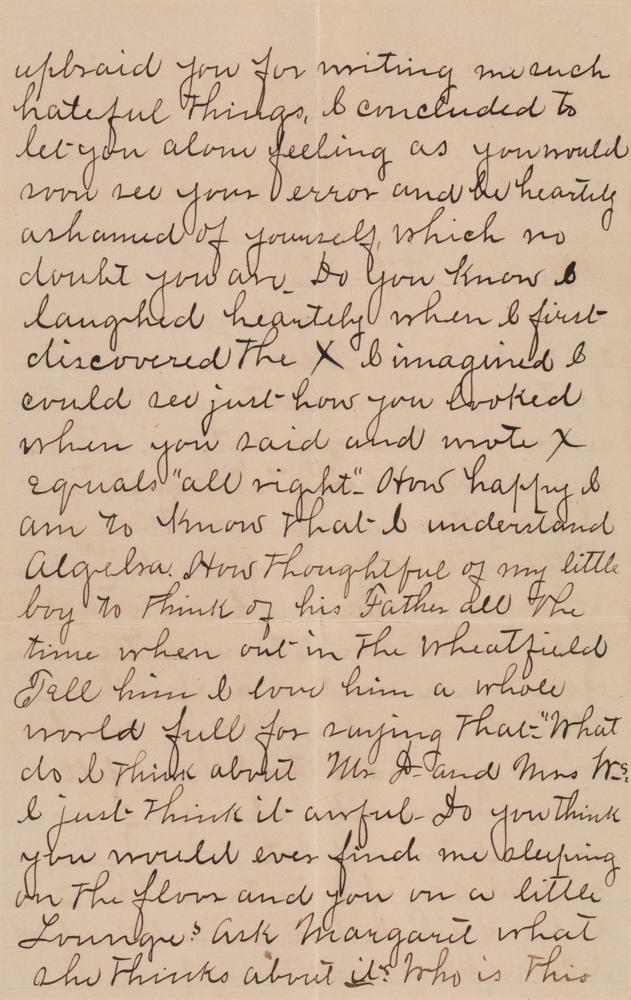 upbraid you for writing me such
hateful things, I concluded to
let you alone feeling as you would
soon see your error and be heartily
ashamed of yourself, which no
doubt you are. Do you know I
laughed heartely when I first
discovered the X I imagined I
could see just how you looked
when you said and wrote X
equals "all right". How happy I
am to know that I understand
Algebra. How thoughtful of my little
boy to think of his Father all the
time when out in the wheatfield
Tell him I love him a whole
world full for saying that- "What
do I think about Mr D- and Mrs W-s,
I just think it awful- Do you think
you would ever find me sleeping
on the floor and you on a little
Lounge? Ask Margaret what
she thinks about it? Who is this